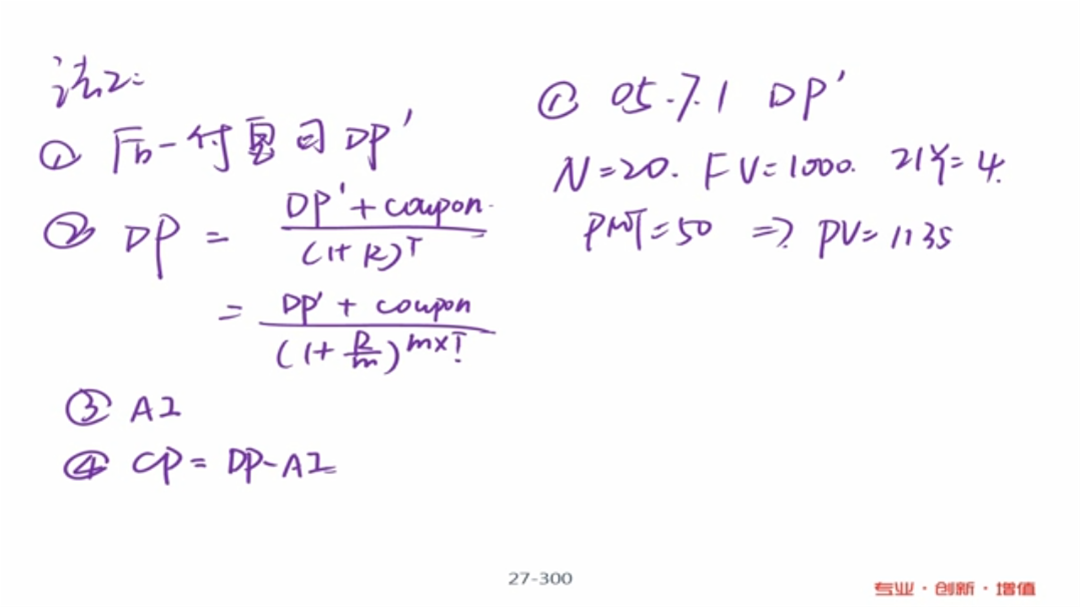 法2:
① 后一付息日 DP'
② DP = DP' + coupon / (1+R)^T
= DP' + coupon / (1+ R/m)^{m×T}
③ AI
④ CP = DP-AI
① 05.7.1 DP'
N=20. FV=1000. I/Y=4.
PMT=50 => PV=1135
27-300
专业·创新·增值